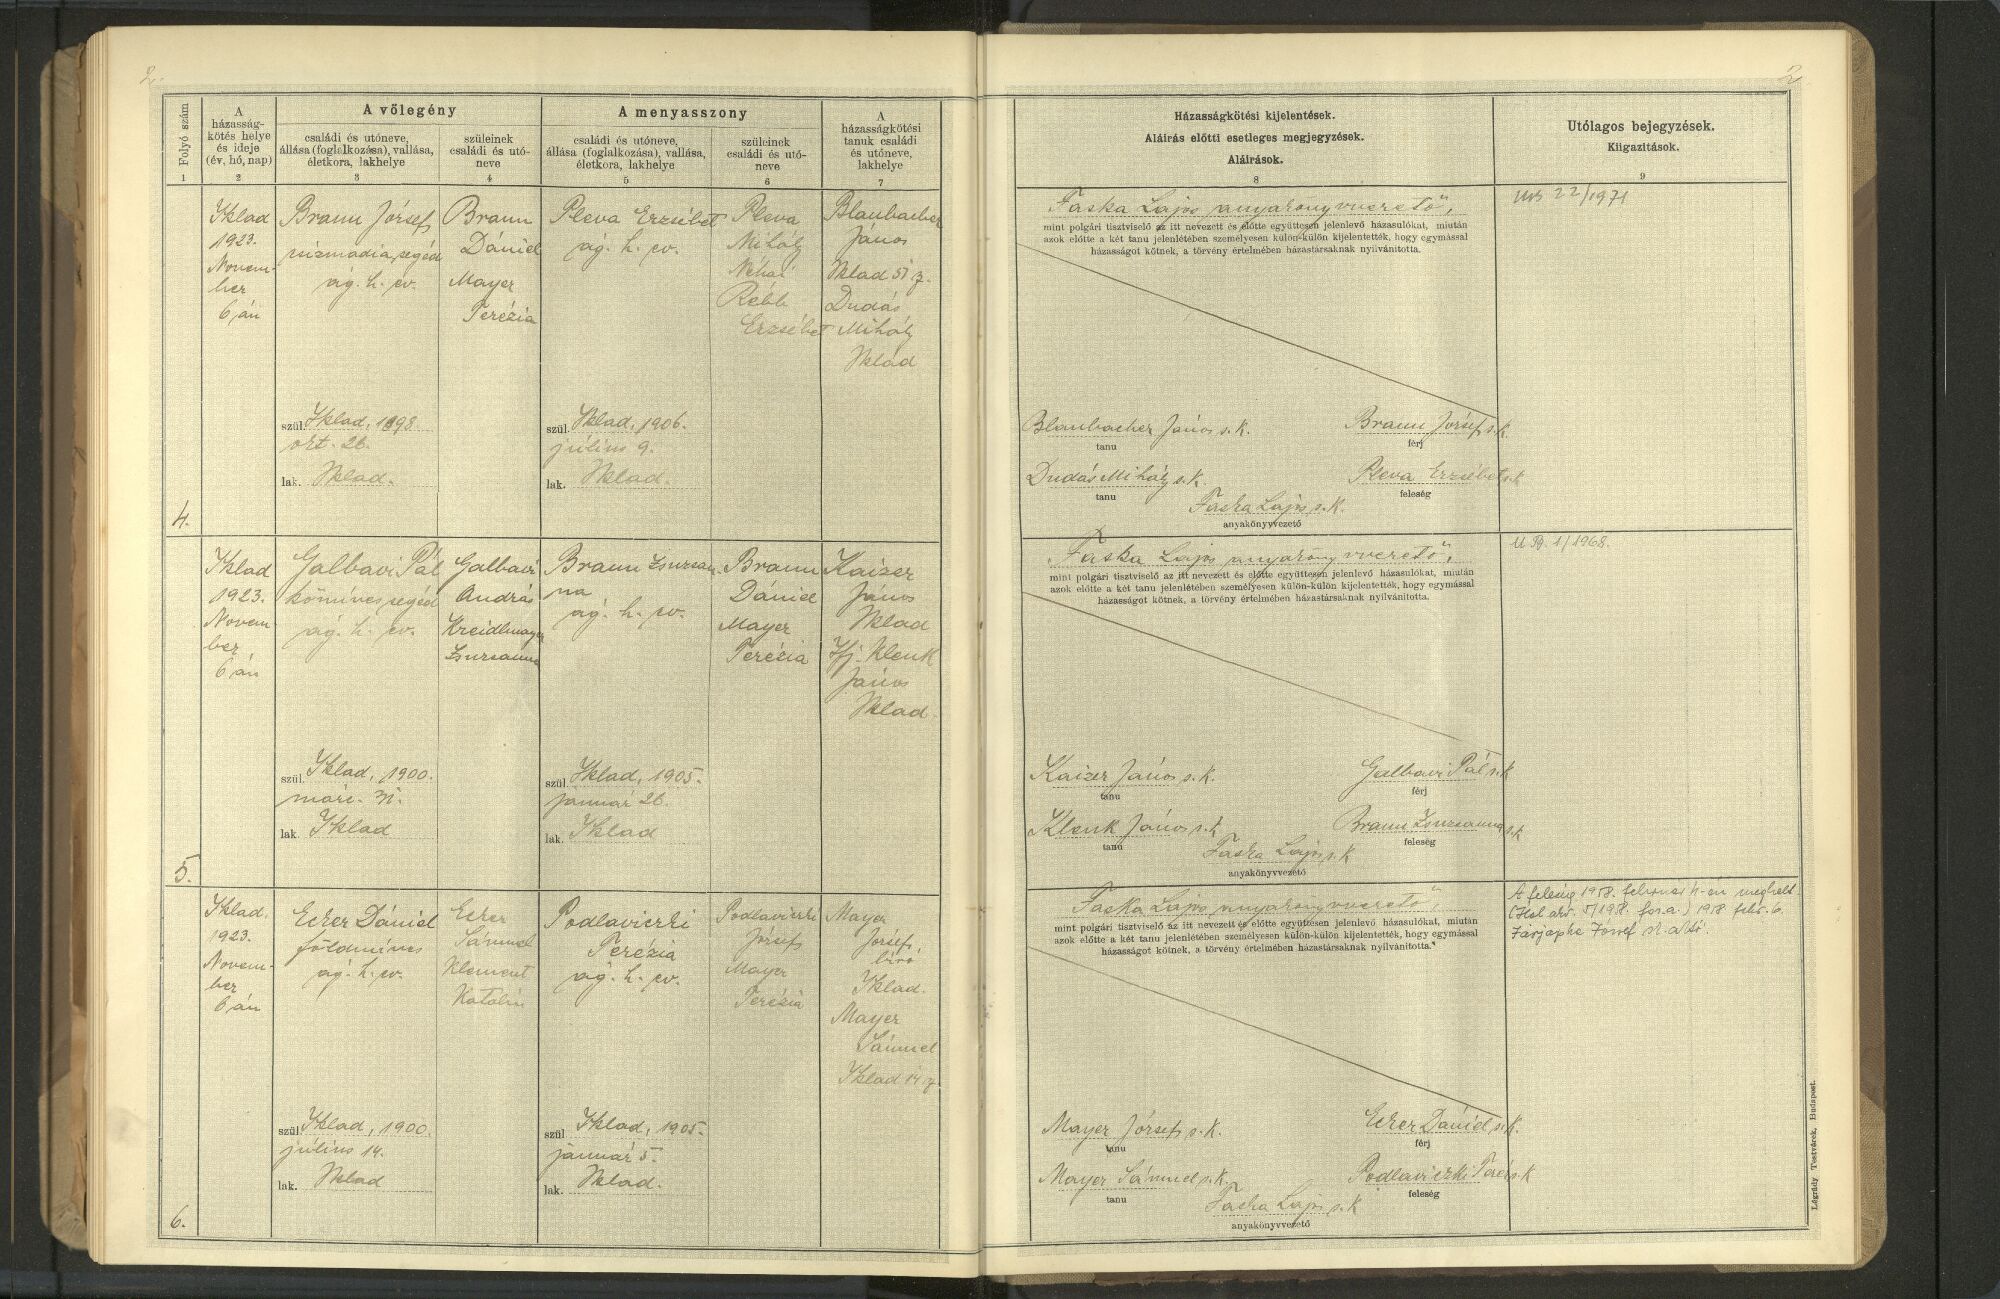 2.
2
Folyó szám
A
házasság-
kötés helye
és ideje
(év, hó, nap)
A vőlegény
családi és utóneve,
állása (foglalkozása), vallása,
életkora, lakhelye
szüleinek
családi és utó-
neve
A menyasszony
családi és utóneve,
állása (foglalkozása), vallása,
életkora, lakhelye
szüleinek
családi és utó-
neve
A
házasságkötési
tanuk családi
és utóneve,
lakhelye
Házasságkötési kijelentések.
Aláírás előtti esetleges megjegyzések.
Aláírások.
Utólagos bejegyzések.
Kiigazítások.
1
2
3
4
5
6
7
8
9
4.
Iklad
1923.
Novem-
ber
6 án
Braun József
csizmadia segéd
ág. h. ev.
szül. Iklad, 1898
okt. 26.
lak. Iklad.
Braun
Dániel
Mayer
Terézia
Pleva Erzsébet
ág. h. ev.
szül. Iklad, 1906.
július 9.
lak. Iklad.
Pleva
Mihály
Néhai
Rébb
Erzsébet
Blaubacher
János
Iklad 51 z.
Dudás
Mihály
Iklad
Faska Lajos anyakönyvvezető",
mint polgári tisztviselő az itt nevezett és előtte együttesen jelenlevő házasulókat, miután
azok előtte a két tanu jelenlétében személyesen külön-külön kijelentették, hogy egymással
házasságot kötnek, a törvény értelmében házastársaknak nyilvánította.
Blaubacher János s. k.
tanu
Braun József s. k
férj
Dudás Mihály s. k.
tanu
Pleva Erzsébet s. k
feleség
Faska Lajos s. k.
anyakönyvvezető
22/1971
5.
Iklad
1923.
Novem-
ber
6 án
Galbavi Pál
kőmíves segéd
ág. h. ev.
szül. Iklad, 1900.
márc. 31.
lak. Iklad
Galbavi
András
Kreidlmayer
Zsuzsanna
Braun Zsuzsan
na
ág. h. ev.
szül. Iklad, 1905.
január 26.
lak. Iklad
Braun
Dániel
Mayer
Terézia
Kaizer
János
Iklad
Ifj. Klenk
János
Iklad.
Faska Lajos anyakönyvvezető",
mint polgári tisztviselő az itt nevezett és előtte együttesen jelenlevő házasulókat, miután
azok előtte a két tanu jelenlétében személyesen külön-külön kijelentették, hogy egymással
házasságot kötnek, a törvény értelmében házastársaknak nyilvánította.
Kaizer János s. k.
tanu
Galbavi Pál s. k
férj
Klenk János s. k
tanu
Braun Zsuzsanna s. k
feleség
Faska Lajos s. k
anyakönyvvezető
1/1968.
6.
Iklad.
1923.
Novem-
ber
6 án
Ecker Dániel
földmíves
ág. h. ev.
szül. Iklad, 1900.
július 14.
lak. Iklad
Ecker
Sámuel
Klement
Katalin
Podlaviczki
Terézia
ág. h. ev.
szül Iklad, 1905.
január 5.
lak. Iklad.
Podlaviczki
József
Mayer
Terézia
Mayer
József,
biró
Iklad.
Mayer
Sámuel
Iklad 14 z.
Faska Lajos anyakönyvvezető"
mint polgári tisztviselő az itt nevezett és előtte együttesen jelenlevő házasulókat, miután
azok előtte a két tanu jelenlétében személyesen külön-külön kijelentették, hogy egymással
házasságot kötnek, a törvény értelmében házastársaknak nyilvánította.
Mayer József s. k.
tanu
Ecker Dániel s. k.
férj
Mayer Sámuel s. k.
tanu
Podlaviczki Teréz s. k
feleség
Faska Lajos s. k
anyakönyvvezető
A feleség 1958. február meghalt
febr. 6.
József
Légrády Testvérek, Budapest.